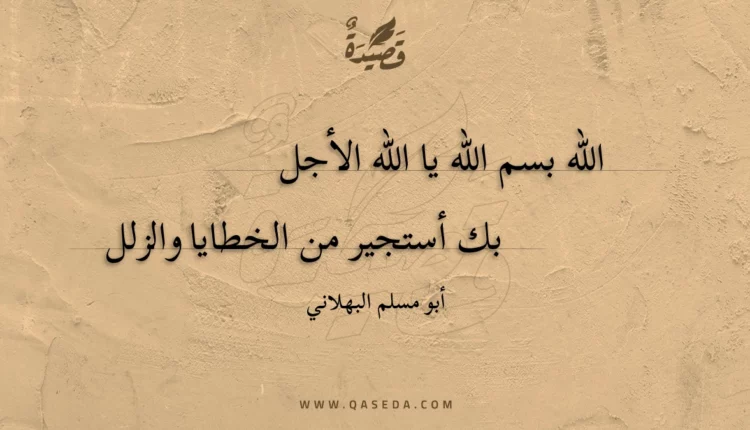 قَصِيْدَةٌ
الله بسم الله يا الله الأجل
بك أستجير من الخطايا والزلل
أبو مسلم البهلاني
WWW.QASEDA.COM